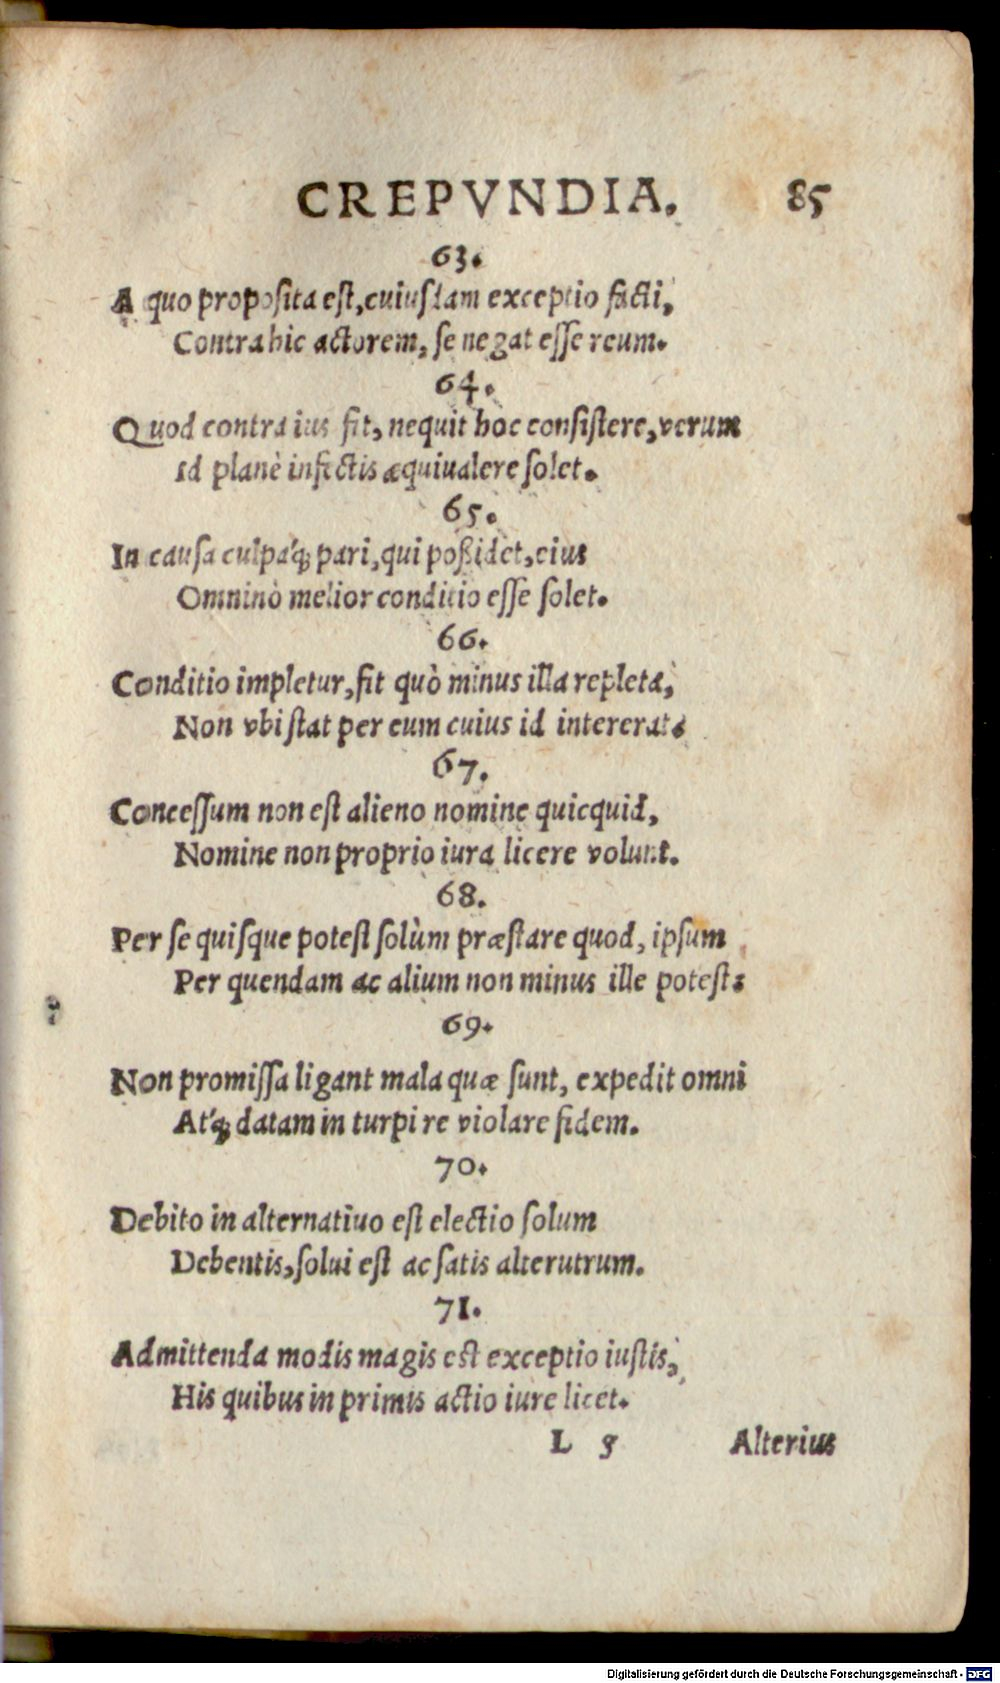 CREPVNDIA. 85
63.
A quo proposita est, cuiusdam exceptio facti,
Contra hic actorem, se negat esse reum.
64.
Quod contra ius fit, nequit hoc consistere, verum
Id planè infectis æquiualere solet.
65.
In causa culpáq; pari, qui poßidet, eius
Omninò melior conditio esse solet.
66.
Conditio impletur, fit quò minus illa repleta,
Non vbi stat per eum cuius id intererat.
67.
Concessum non est alieno nomine quicquid,
Nomine non proprio iura licere volunt.
68.
Per se quisque potest solùm præstare quod, ipsum
Per quendam ac alium non minus ille potest.
69.
Non promissa ligant mala quæ sunt, expedit omni
At'q; datam in turpi re violare fidem.
70.
Debito in alternatiuo est electio solum
Debentis, solui est ac satis alterutrum.
71.
Admittenda modis magis est exceptio iustis,
His quibus in primis actio iure licet.
L 5 Alterius
Digitalisierung gefördert durch die Deutsche Forschungsgemeinschaft - DFG